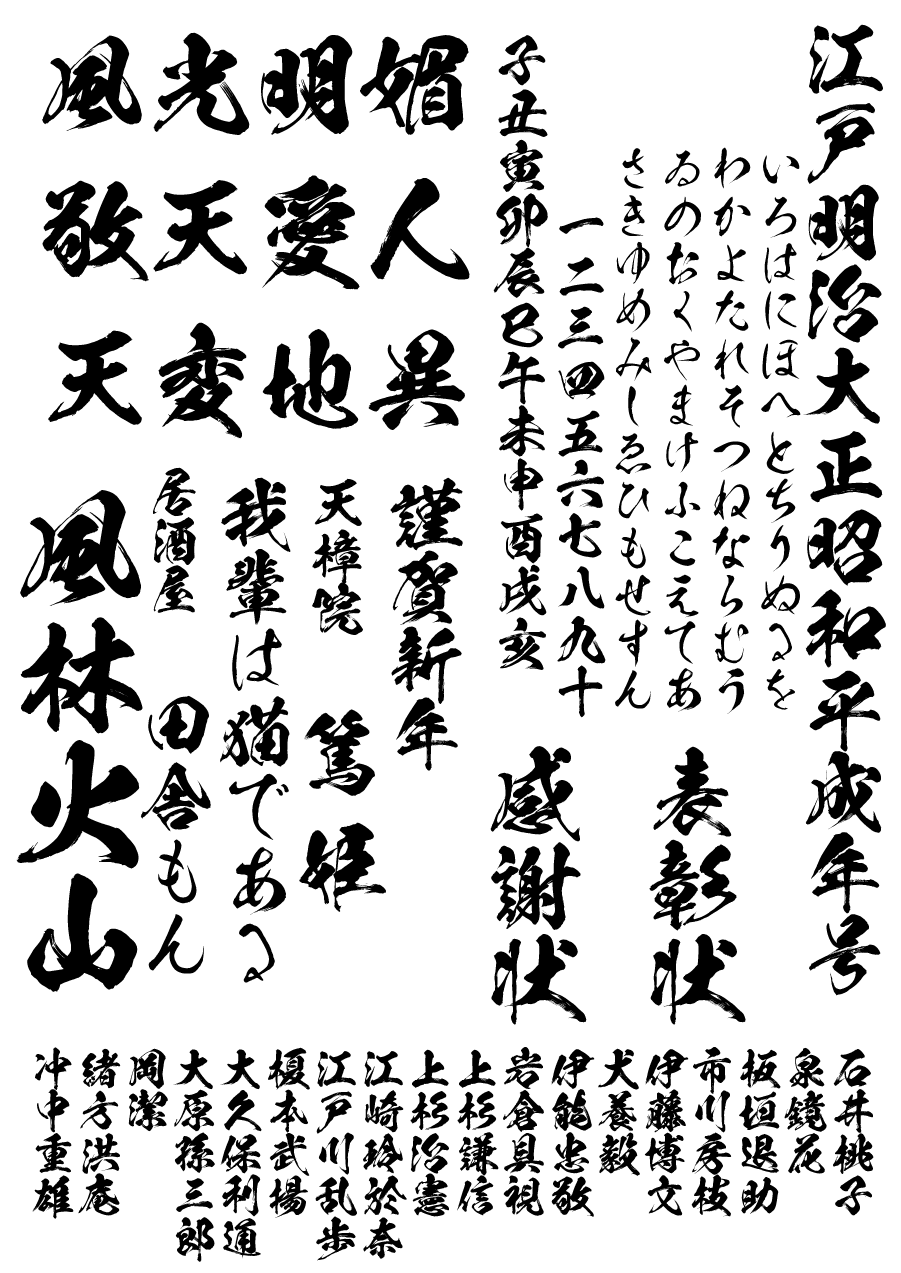 江戸明治大正昭和平成年号
いろはにほへとちりぬるを
わかよたれそつねならむう
ゐのおくやまけふこえてあ
さきゆめみしゑひもせすん
一二三四五六七八九十
子丑寅卯辰巳午未申酉戌亥
表彰状
感謝状
風光明媚
敬天愛人
天変地異
謹賀新年
天樟院
篤姫
我輩は猫である
居酒屋
田舎もん
風林火山
石井桃子
泉鏡花
板垣退助
市川房枝
伊藤博文
犬養毅
伊能忠敬
岩倉具視
上杉謙信
上杉治憲
江崎玲於奈
江戸川乱歩
榎本武揚
大久保利通
大原孫三郎
岡潔
緒方洪庵
冲中重雄